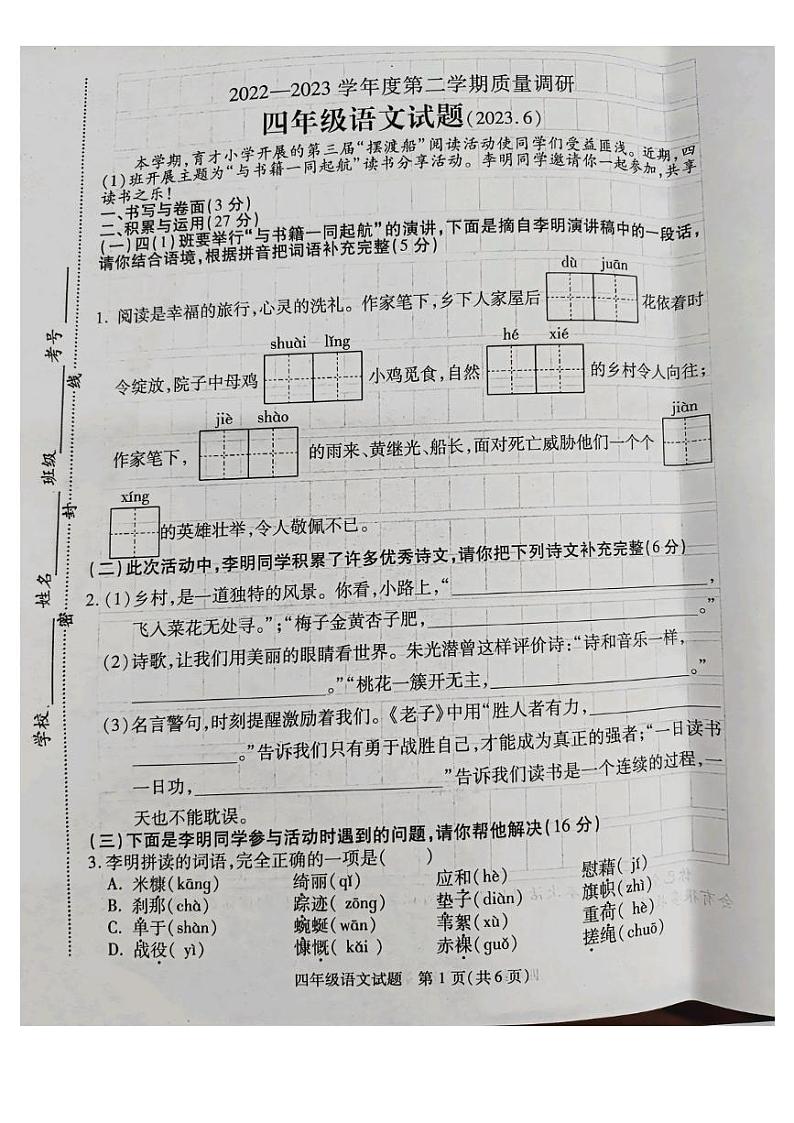 2022—2023 学年度第二学期质量调研
四年级语文试题(2023.6)
本学期,育才小学开展的第三届“摆渡船”阅读活动使同学们受益匪浅。近期,四
(1)班开展主题为“与书籍一同起航”读书分享活动。李明同学邀请你一起参加,共享
读书之乐!
一、书写与卷面(3 分)
二、积累与运用(27 分)
(一)四(1)班要举行“与书籍一同起航”的演讲,下面是摘自李明演讲稿中的一段话,
请你结合语境,根据拼音把词语补充完整(5 分)
dù juān
1. 阅读是幸福的旅行,心灵的洗礼。作家笔下,乡下人家屋后 花依着时
shuài lǐng hé xié
令绽放,院子中母鸡 小鸡觅食,自然 的乡村令人向往;
jiè shào jiàn
作家笔下, 的雨来、黄继光、船长,面对死亡威胁他们一个个
xíng
的英雄壮举,令人敬佩不已。
(二)此次活动中,李明同学积累了许多优秀诗文,请你把下列诗文补充完整(6 分)
2. (1)乡村,是一道独特的风景。你看,小路上,“ ,
飞入菜花无处寻。”;“梅子金黄杏子肥, 。”
(2)诗歌,让我们用美丽的眼睛看世界。朱光潜曾这样评价诗:“诗和音乐一样,
。”“桃花一簇开无主, 。”
(3)名言警句,时刻提醒激励着我们。《老子》中用“胜人者有力,
。”告诉我们只有勇于战胜自己,才能成为真正的强者;“一日读书
一日功, ”告诉我们读书是一个连续的过程,一
天也不能耽误。
(三)下面是李明同学参与活动时遇到的问题,请你帮他解决(16 分)
3. 李明拼读的词语,完全正确的一项是( )
A. 米糠(kāng) 绮丽(qǐ) 应和(hè) 慰藉(jí)
B. 刹那(chà) 踪迹(zōng) 垫子(diàn) 旗帜(zhì)
C. 单于(shàn) 蜿蜒(wān) 苇絮(xù) 重荷(hè)
D. 战役(yì) 慷慨(kǎi) 赤裸(guǒ) 搓绳(chuō)
四年级语文试题 第 1 页(共 6 页)
学校 姓名 班级 考号
密 封 线